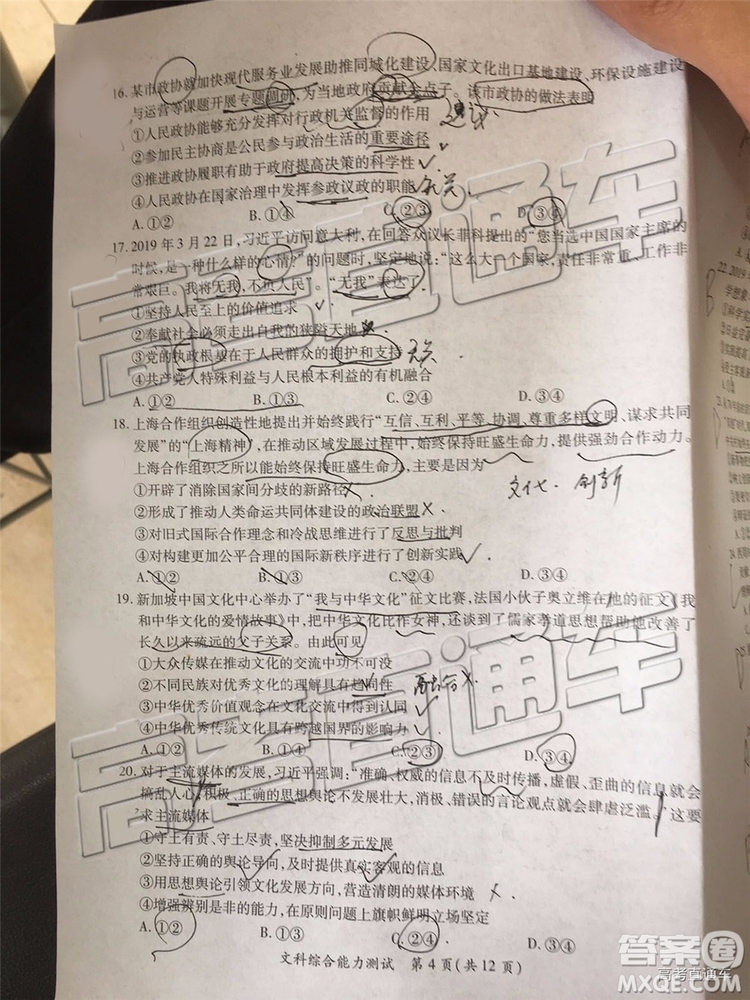 16. 某市政协就加快现代服务业发展助推同城化建设、国家文化出口基地建设、环保设施建设
与运营等课题开展专题调研，为当地政府贡献金点子。该市政协的做法表明
①人民政协能够充分发挥对行政机关监督的作用
②参加民主协商是公民参与政治生活的重要途径
③推进政协履职有助于政府提高决策的科学性
④人民政协在国家治理中发挥参政议政的职能 无关
A. ①② B. ①④ C. ②③ D. ③④
17. 2019 年 3 月 22 日，习近平访问意大利，在回答众议长菲科提出的“您当选中国国家主席的
时候，是一种什么样的心情？”的问题时，坚定地说：“这么大一个国家，责任非常重、工作非
常艰巨。我将无我，不负人民”。“无我”表达了
①坚持人民至上的价值追求
②奉献社会必须走出自我的狭隘天地
③党的执政根基在于人民群众的拥护和支持 无关
④共产党人特殊利益与人民根本利益的有机融合
A. ①② B. ①③ C. ②④ D. ③④
18. 上海合作组织创造性地提出并始终践行“互信、互利、平等、协调、尊重多样文明、谋求共同
发展”的“上海精神”，在推动区域发展过程中，始终保持旺盛生命力，提供强劲合作动力。
上海合作组织之所以能始终保持旺盛生命力，主要是因为
①开辟了消除国家间分歧的新路径
文化 创新
②形成了推动人类命运共同体建设的政治联盟
③对旧式国际合作理念和冷战思维进行了反思与批判
④对构建更加公平合理的国际新秩序进行了创新实践
A. ①② B. ①③ C. ②④ D. ③④
19. 新加坡中国文化中心举办了“我与中华文化”征文比赛，法国小伙子奥立维在他的征文《我
和中华文化的爱情故事》中，把中华文化比作女神，还谈到了儒家孝道思想帮助他改善了
长久以来疏远的父子关系。由此可见
①大众传媒在推动文化的交流中功不可没
②不同民族对优秀文化的理解具有趋同性
③中华优秀价值观念在文化交流中得到认同
④中华优秀传统文化具有跨越国界的影响力
A. ①② B. ①④ C. ②③ D. ③④
20. 对于主流媒体的发展，习近平强调：“准确、权威的信息不及时传播，虚假、歪曲的信息就会
搞乱人心；积极、正确的思想舆论不发展壮大，消极、错误的言论观点就会肆虐泛滥。”这要
求主流媒体
①守土有责、守土尽责，坚决抑制多元发展
②坚持正确的舆论导向，及时提供真实客观的信息
③用思想舆论引领文化发展方向，营造清朗的媒体环境
④增强辨别是非的能力，在原则问题上旗帜鲜明立场坚定
A. ①② B. ①③ C. ②④ D. ③④
文科综合能力测试 第 4 页（共 12 页）
高考直通车
高考直通车
答案卷
高考直通车
MXQE.COM